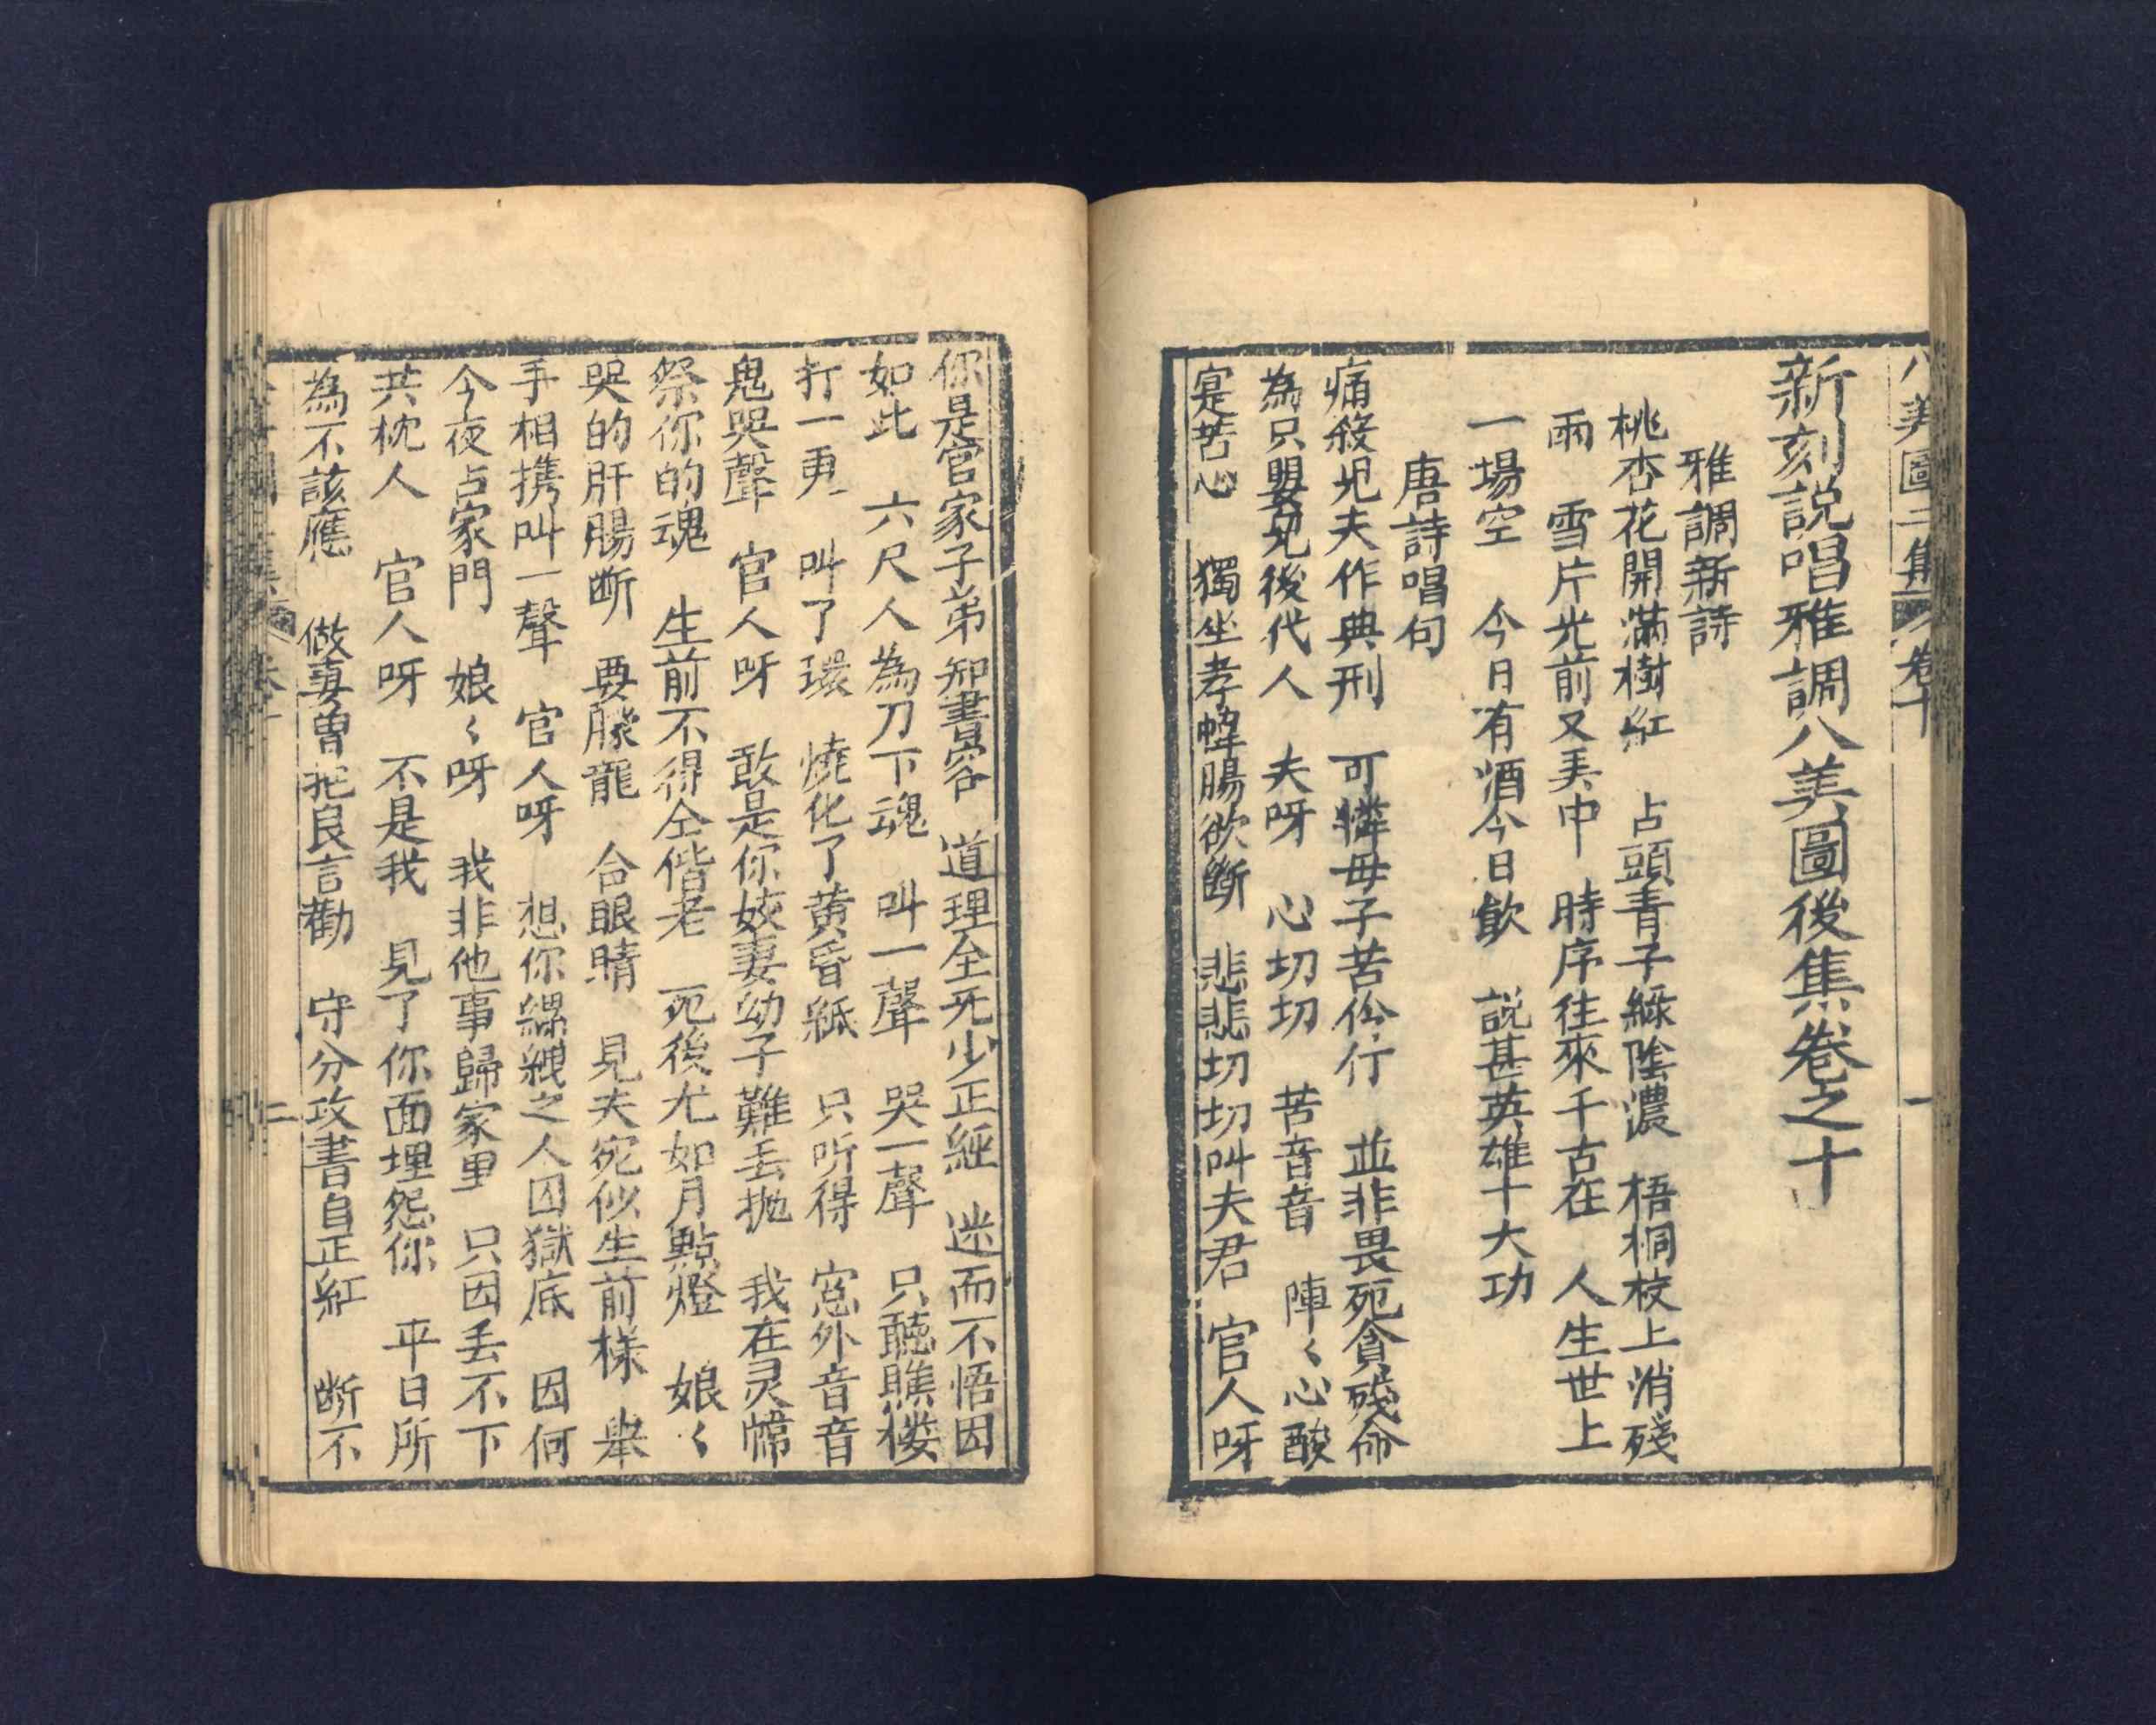 八美圖二集 卷十 一
新刻説唱雅調八美圖後集卷之十
雅調新詩
桃杏花開滿樹紅 占頭青子綠陰濃 梧桐枝上消殘
雨 雪片光前又美中 時序往來千古在 人生世上
一場空 今日有酒今日飲 説甚英雄十大功
唐詩唱句
痛殺児夫作典刑 可憐母子苦伶仃 並非畏死貪殘命
為只嬰児後代人 夫呀 心切切 苦音音 陣〻心酸
寔苦心 獨坐孝幃腸欲断 悲悲切切叫夫君 官人呀
你是官家子弟知書客 道理全无少正經 迷而不悟因
如此 六尺人為刀下魂 叫一聲 哭一聲 只聽瞧楼
打一更 叫了環 燒化了黄昏紙 只听得 窓外音音
鬼哭聲 官人呀 敢是你姣妻幼子難丢抛 我在灵幃
祭你的魂 生前不得仝偕老 死後尤如月點燈 娘〻
哭的肝腸断 要朦朧 合眼睛 見夫宛似生前樣 舉
手相携叫一聲 官人呀 想你縲絏之人囚獄底 因何
今夜占家門 娘〻呀 我非他事歸家里 只因丢不下
共枕人 官人呀 不是我 見了你面埋怨你 平日所
為不該應 做妻曽把良言勸 守分攻書自正紅 断不
二